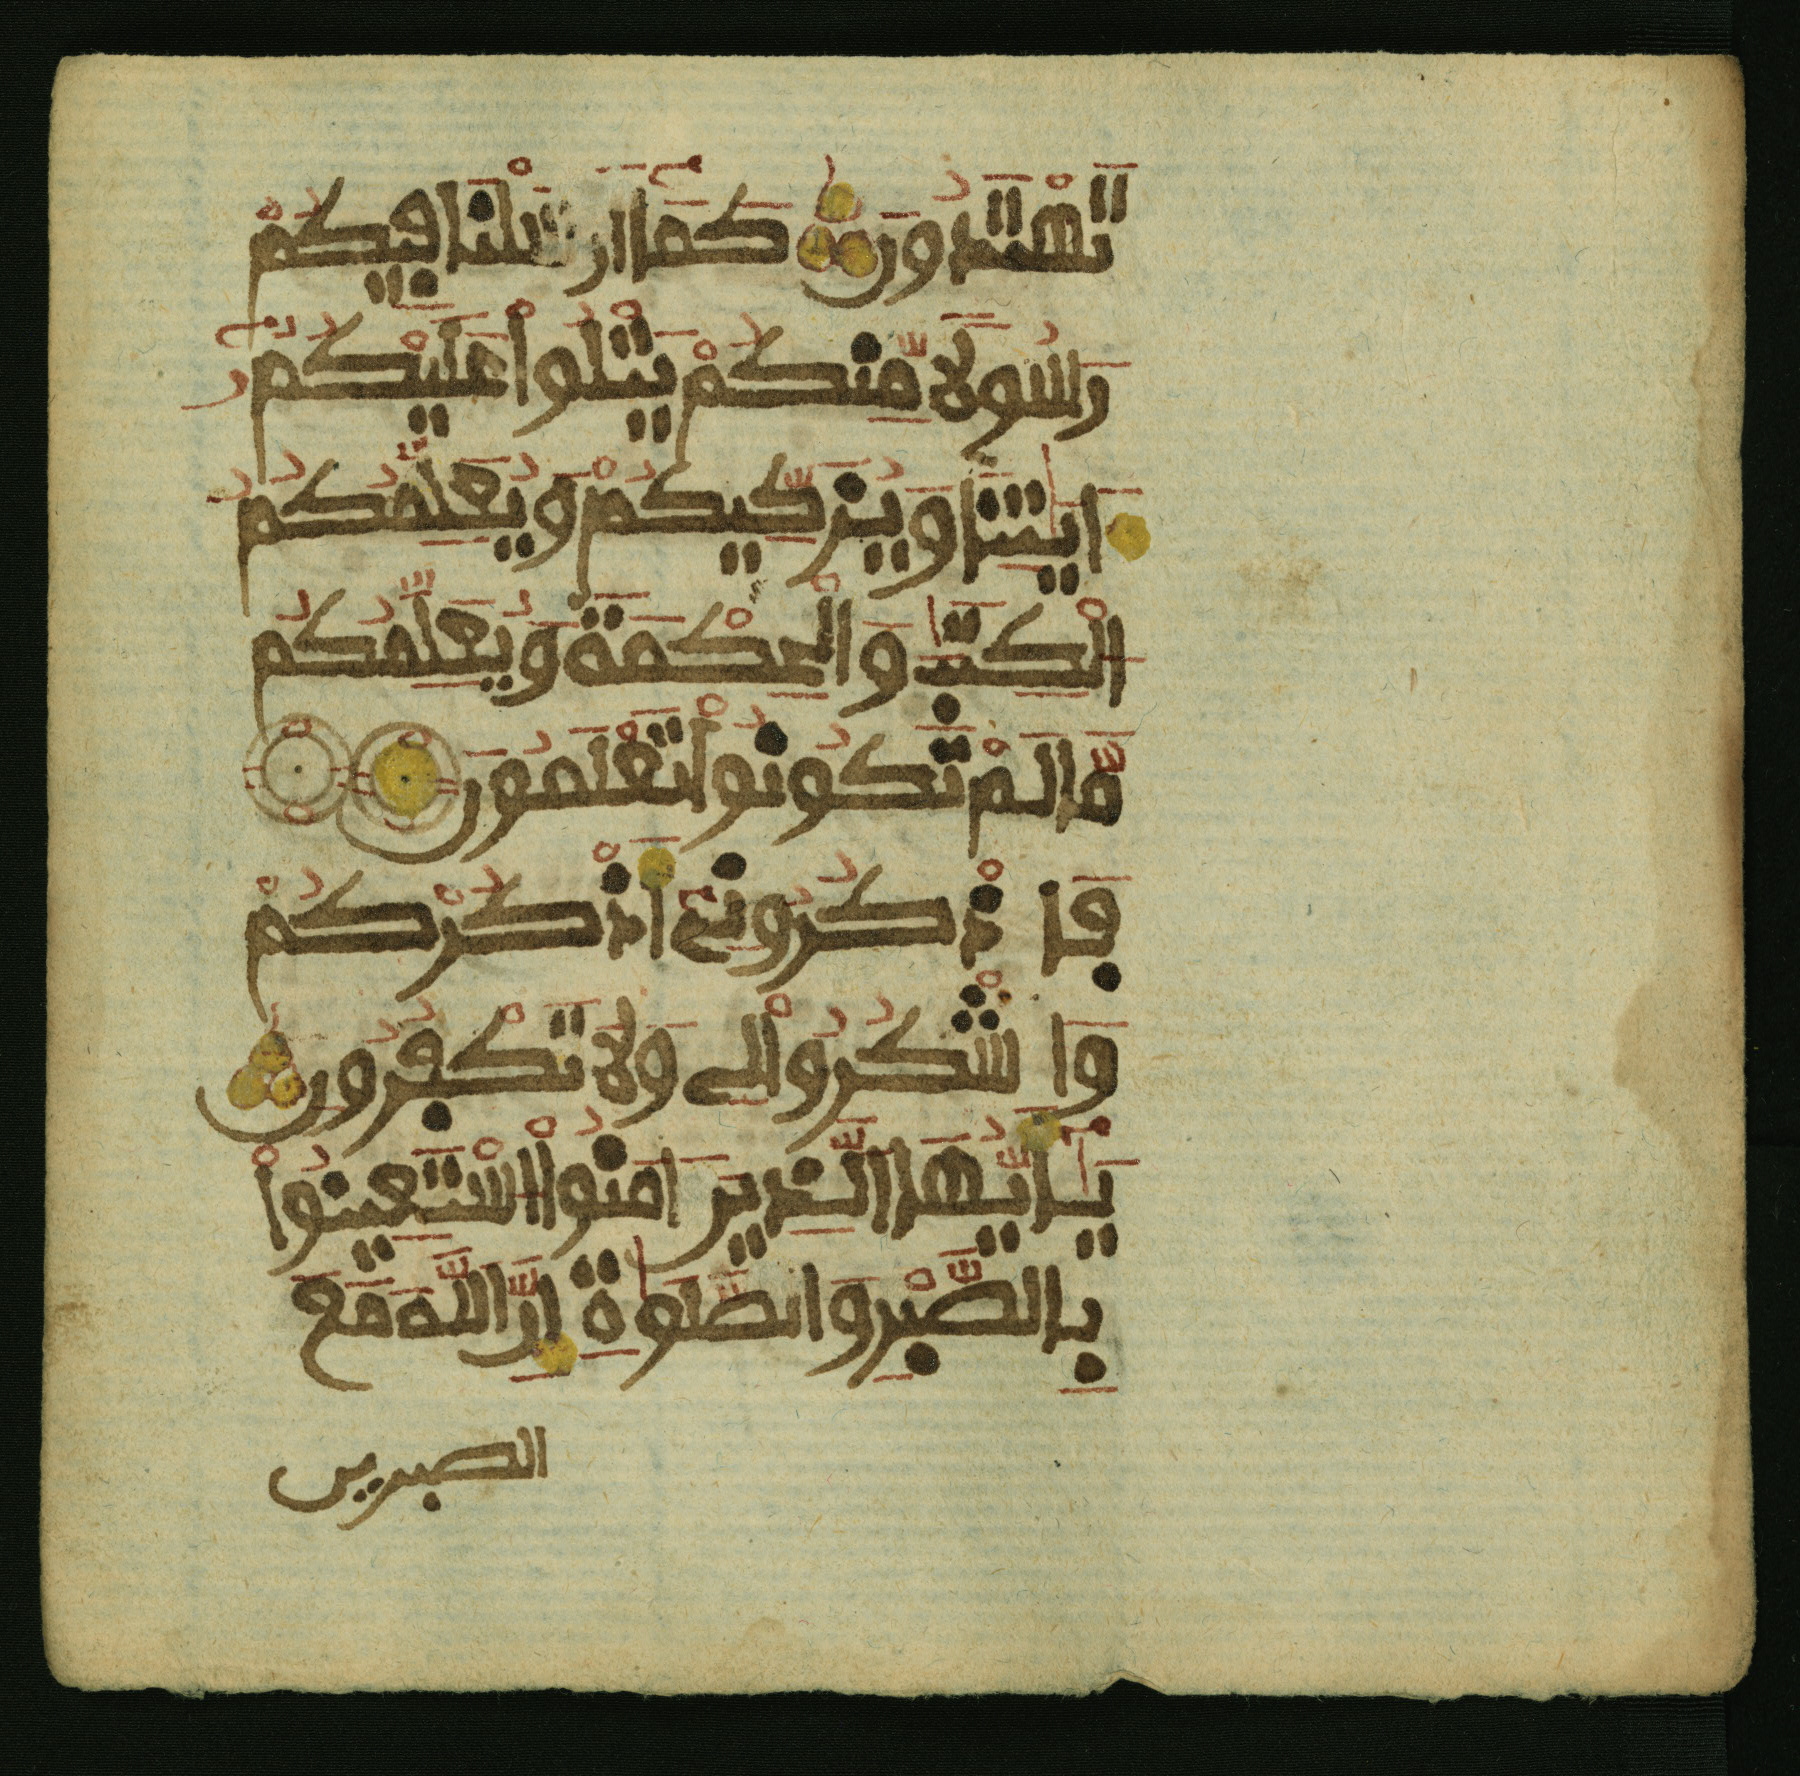 تَهْتَدُونَ كَمَا أَرْسَلْنَا فِيكُمْ
رَسُولًا مِّنكُمْ يَتْلُوا۟ عَلَيْكُمُ
ءَايَٰتِنَا وَيُزَكِّيكُمْ وَيُعَلِّمُكُمُ
الْكِتَٰبَ وَالْحِكْمَةَ وَيُعَلِّمُكُم
مَّا لَمْ تَكُونُوا۟ تَعْلَمُونَ
فَاذْكُرُونِي أَذْكُرْكُمْ
وَاشْكُرُوا۟ لِي وَلَا تَكْفُرُونِ
يَٰٓأَيُّهَا الَّذِينَ ءَامَنُوا۟ اسْتَعِينُوا۟
بِالصَّبْرِ وَالصَّلَوٰةِ إِنَّ اللَّهَ مَعَ
الصبرين